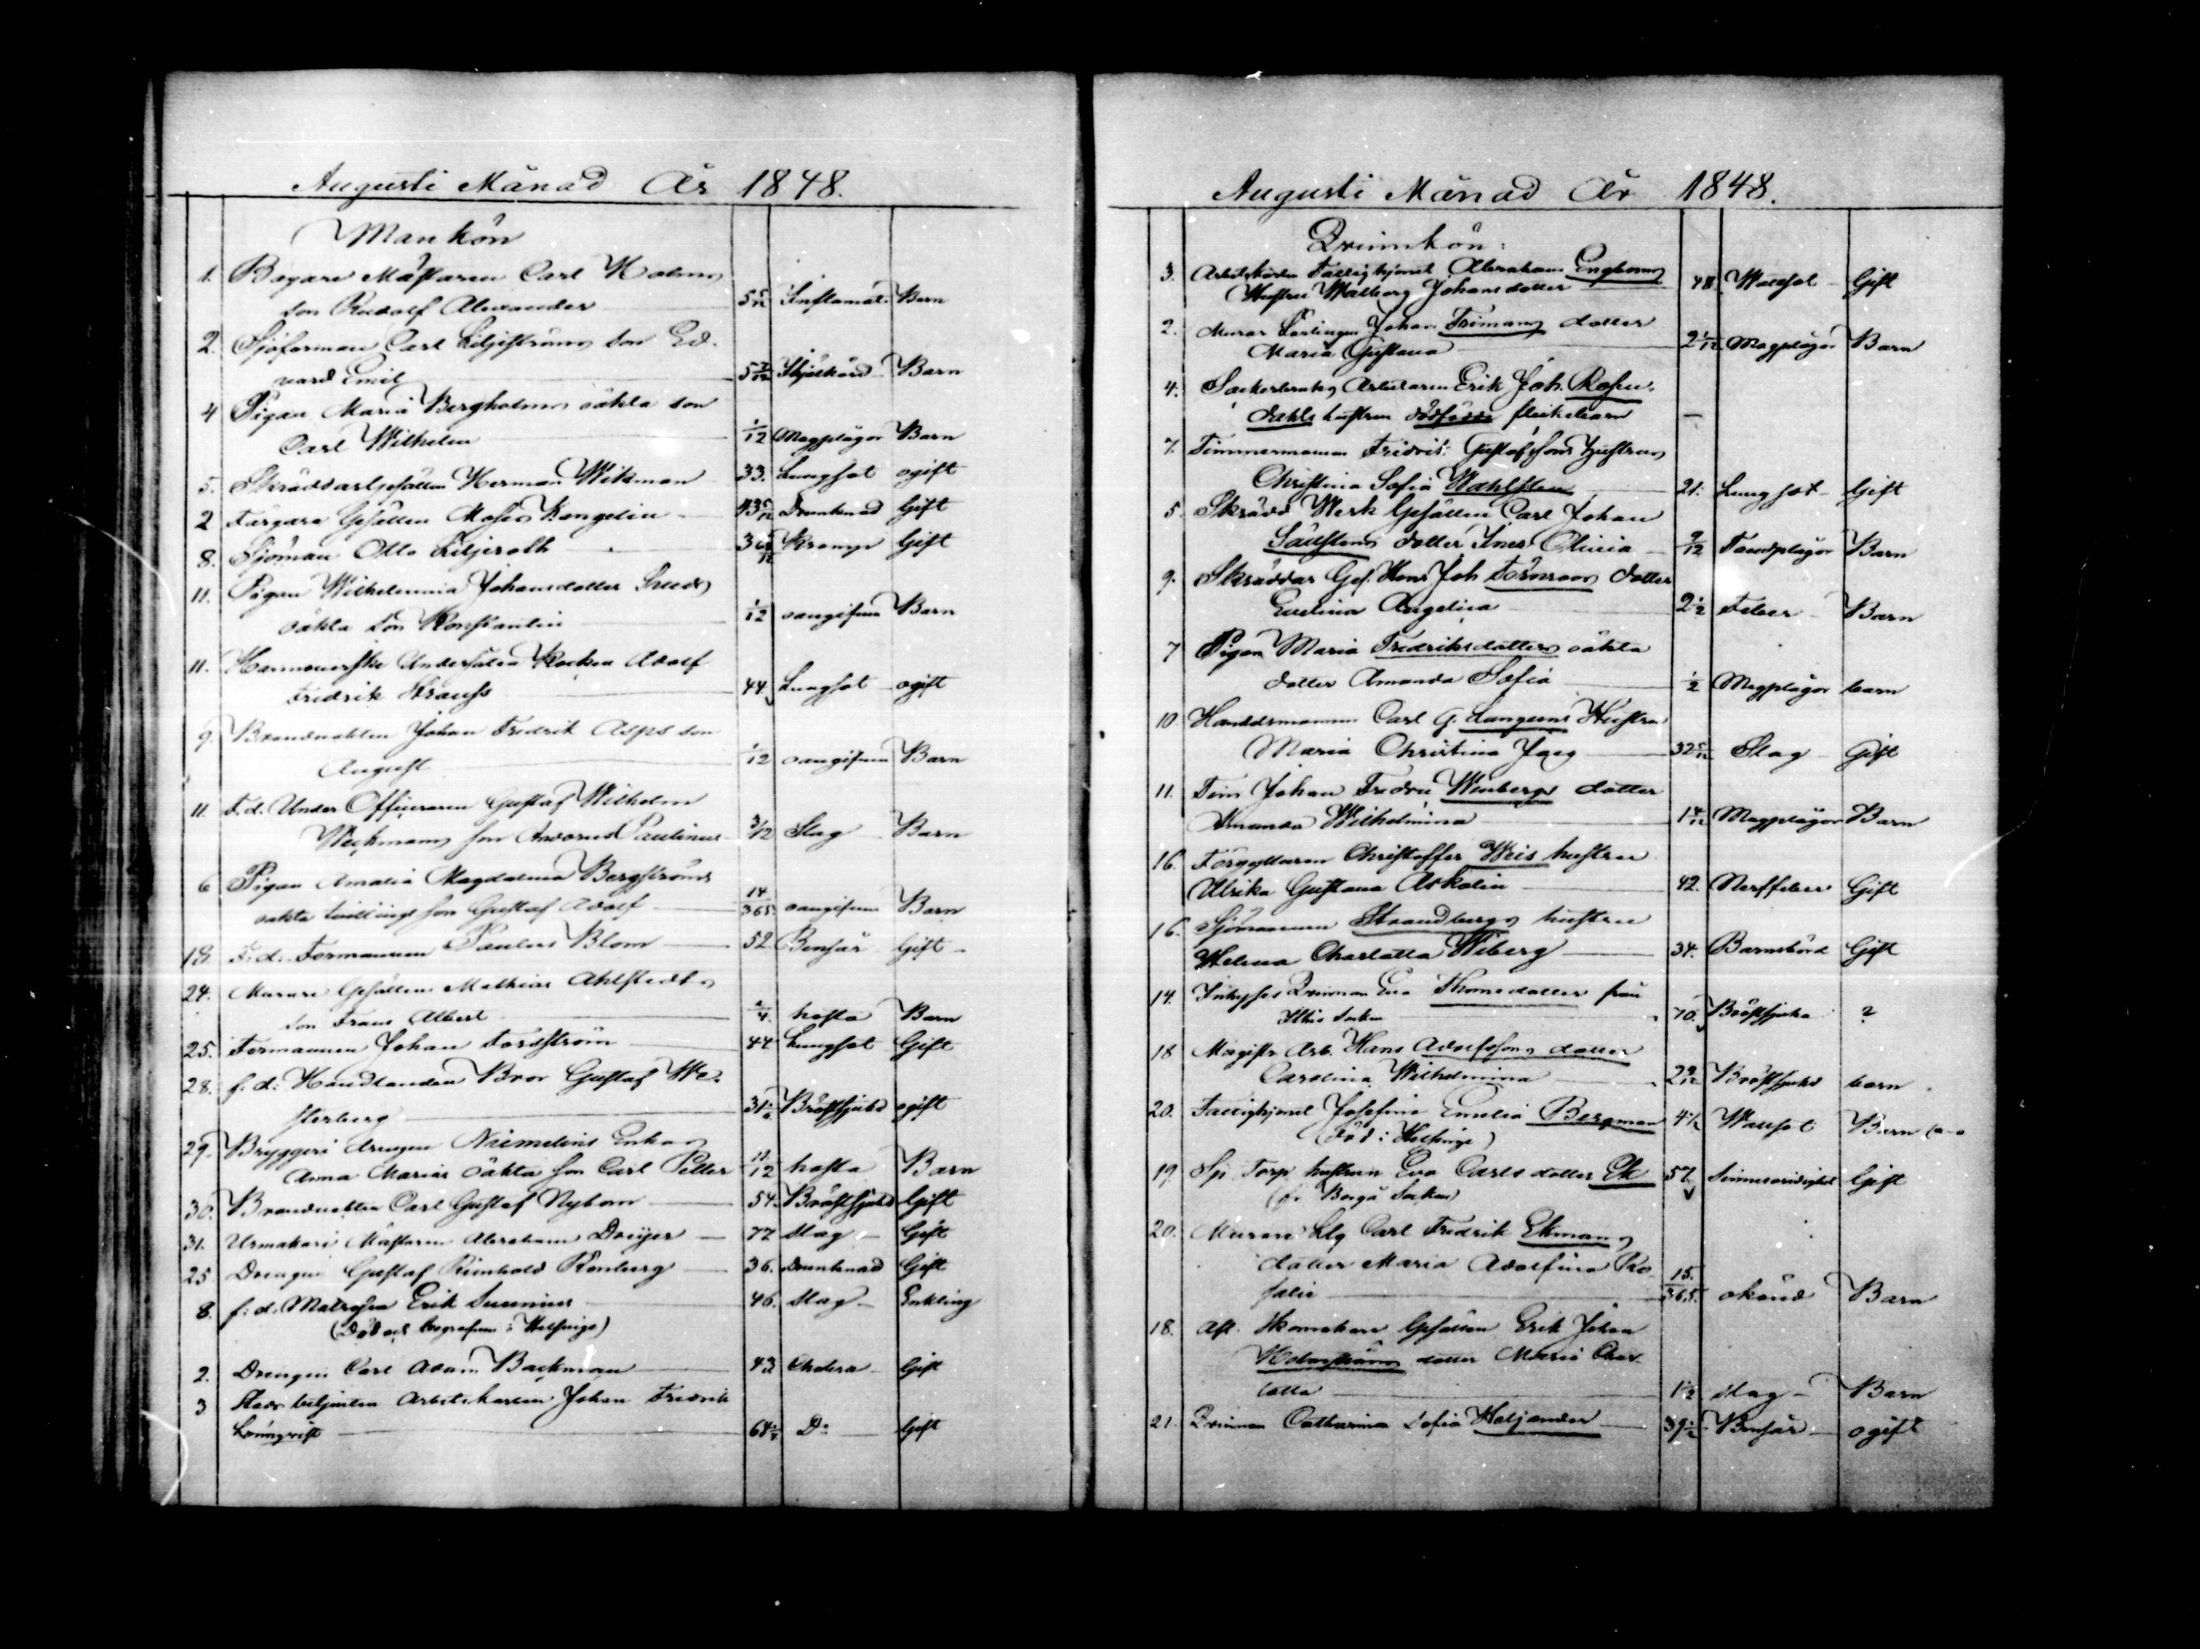 Augusti Månad År 1848.
Mankön
1. Bagare Mästaren Carl Holms
son Rudolf Alexander 5 5/12 Inflamat. Barn
2. Sjöforman Carl Liljeströms son Ed-
vard Emil 5 7/12 Barn
4 Pigan Maria Bergholms oäkta son
Carl Wilhelm 1/12 Magplågor Barn
5. Skräddargesällen Herman Wikman 33. Lungsot ogift
2 Färgare Gesällen Moses Wangelin Drunknad Gift
8. Sjöman Otto Liljeroth Kramp Gift
11. Pigan Wilhelmina Johansdotter
oäkta son Konstantin 1/12 oangifven Barn
11. Undersåten Adolf
Fredrik Strauss 44 Lungsot ogift
9. Brandvakten Johan Fredrik Asps son
August 1/12 oangifven Barn
11. F.d. Under Officeraren Gustaf Wilhelm
Weckmans son Paulinus 3/12 Slag Barn
6 Pigan Amalia Magdalena Bergströms
oäkta tvillings son Gustaf Adolf 14/365 oangifven Barn
18. F.d. Formannen Paulus Blom 52 Bensår Gift
24. Murare Gesällen Mathias Ahlstedts
son Frans Albert hosta Barn
25. Formannen Johan Forsström 44 Lungsot Gift
28. f.d: Handlanden Bror Gustaf We-
sterberg 31 Bröstsjukd ogift
29. Bryggeri drengen Niemelins Enkas
Anna Marias oäkta son Carl Petter 11/12 hosta Barn
30. Brandvakten Carl Gustaf Nybom 54. Bröstsjukd Gift
31. Urmakare Mästaren Abraham Dreijer 77 Slag Gift
25 Drengen Gustaf Reinhold Renberg 36. Drunknad Gift
8. f:d. Matrosen Erik Sursnius 46. Slag Enkling
(Död och begrafven i Helsinge)
2. Drengen Carl Adam Backman 43 Cholera Gift
3 Stads betjenten Arbetskarlen Johan Fredrik
Lönnqvist 68 D: Gift
Augusti Månad År 1848.
Qvinnkön:
3. Arbetskarlen Fattighjonet Abraham Engboms
Hustru Walborg Johansdotter 48 Wattsot Gift
2. Murar Lärlingen Johan Frimans dotter
Maria Gustava 2 1/12 Magplågor Barn
4. Sockerbruks Arbetaren Erik Joh. Rosen-
dahls hustrus dödfödde flickebarn —
7. Timmermannen Fridrik Gustafssons hustru
Christina Sofia Wahlsten 21. Lungsot Gift
5. Skrädd Werk Gesällen Carl Johan
dotter Ines Olivia 9/12 Tandplågor Barn
9. Skräddar Ges. Hans Joh Törnroos dotter
Evelina Angelica 2 1/2 Feber Barn
7 Pigan Maria Fredriksdotters oäkta
dotter Amanda Sofia 1/2 Magplågor barn
10 Handelsmannen Carl G. Langens Hustru
Maria Christina 32 5/12 Slag Gift
11. Tim Johan Fredri Winbergs dotter
Amanda Wilhelmina Magplågor Barn
16. Förgyllaren Christoffer Weis hustru
Ulrika Gustava Askolin 42. Nerffeber Gift
16. Sjömannen Strandbergs hustru
Helena Charlotta Wiberg 34. Barnsbörd Gift
14. Inhyses Qvinnan Eva Thomedotter från
Socken 70. Bröstsjuka ?
18 Arb. Hans Adolfssons dotter
Carolina Wilhelmina 2 9/12 Bröstsjukd barn
20. Fattighjonet Josefina Emelia Bergman Wattsot Barn
(Död i Helsinge)
19. Torp hustrun Eva Carlsdotter Ek 57 Sinnessvaghet Gift
(fr Borgå Socken)
20. Murare Lärlg Carl Fredrik Ekmans
dotter Maria Adolfina Ro-
salie 15/365. okänd Barn
18. Afl. Skomakare Gesällen Erik Johan
Holmströms dotter Maria Char-
lotta 1 1/2 slag Barn
21. Qvinnan Catharina Sofia Heljander 39 Bensår ogift